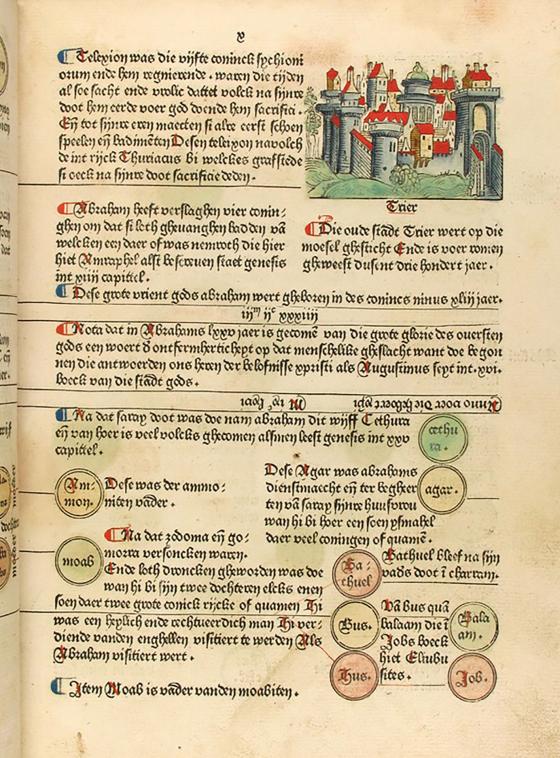 v
Telexion was die vijfte coninck sychioni
orum ende hem regnierende. waren die tijden
al soe sacht ende vrolic dattet volck na sijnre
doot hem eerde voer god doende hem sacrifici.
En̄ tot sijnre eren maecten si alre eerst schoen
speelen en̄ badimēten Desen telexion navolch
de int rijck Thuriacus bi welckes graf stede
si oeck na sijnre doot sacrificie deden.
Trier
Abraham heeft verslaghen vier conin-
ghen om dat si loth ghevanghen hadden vā
welcken een daer of was nemroth die hier
hiet Amraphel alst bescreven staet genesis
int xiiij capittel.
Die oude stadt Trier wert op die
moesel ghesticht Ende is voer romen
gheweest dusent drie hondert jaer.
Dese grote vrient gods abraham wert gheboren in des conincs ninus xliij jaer.
iijᵐ ijᶜ xxxiiij
Nota dat in Abrahams lxxv jaer is gecomē van die grote glorie des oversten
gods een woert d' ontfermherticheyt op dat menschelike gheslacht want doe begon
nen die antwoerden ons heren der beloefnisse xpristi als Augustinus seyt int .xvi.
boeck van die stadt gods.
Anno voer die gheboert xpi
Na dat saray doot was doe nam abraham dit wijff Cethura
en̄ van hoer is veel volcks ghecomen alsmen leest genesis int xxv
capittel.
cethu
ra.
Am-
mon.
Dese was der ammo-
niten vader.
Dese Agar was abrahams
dienstmaecht en̄ ter begheer
ten vā saray sijnre huusvrou
wan hi bi hoer een soen ysmahel
daer veel coningen of quamē.
agar.
Na dat zodoma en̄ go-
morra versoncken waren.
Ende loth droncken gheworden was doe
wan hi bi sijn twee dochteren elcks enen
soen daer twee grote conick rijcke of quamen Hi
was een heylich ende rechtueerdich man Hi ver-
diende vanden enghellen visitiert te werden Als
Abraham visitiert wert.
moab
Ba-
thuel
Bathuel bleef na sijn
vads doot ī charram.
Bus.
Vā bus quā
balaam die ī
Jobs boeck
hiet Eliubu
sites.
Bala
am.
Hus.
Job.
Item Moab is vader vanden moabiten.